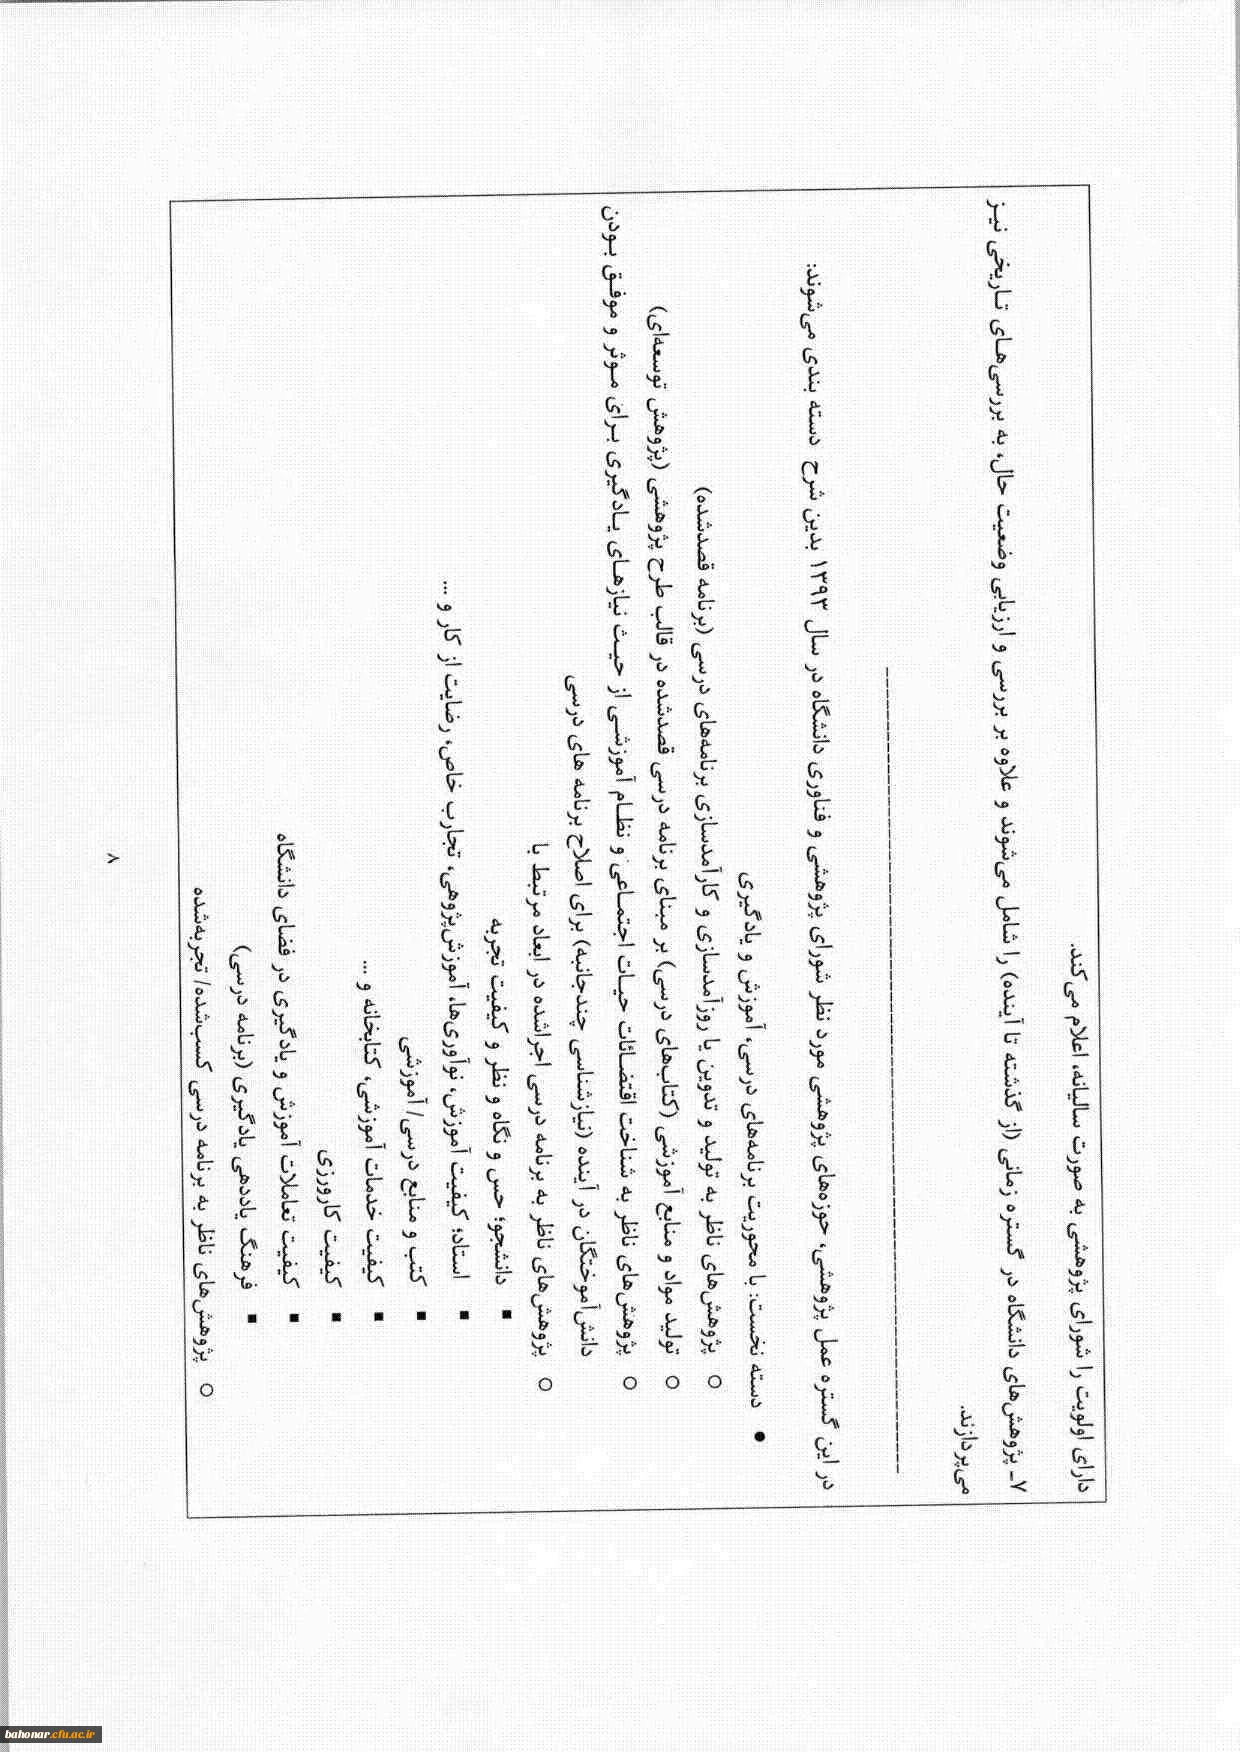 دارای اولویت را شورای پژوهشی به صورت سالیانه، اعلام می‌کند.
۷ـ پژوهش‌های دانشگاه در گستره زمانی (از گذشته تا آینده) را شامل می‌شوند و علاوه بر بررسی و ارزیابی وضعیت حال، به بررسی‌های تاریخی نیز
می‌پردازند.
در این گستره عمل پژوهشی، حوزه‌های پژوهشی مورد نظر شورای پژوهشی و فناوری دانشگاه در سال ۱۳۹۳ بدین شرح دسته بندی می‌شوند:
● دسته نخست: با محوریت برنامه‌های درسی، آموزش و یادگیری
○ پژوهش‌های ناظر به تولید و تدوین یا روزآمدسازی و کارآمدسازی برنامه‌های درسی (برنامه قصدشده)
○ تولید مواد و منابع آموزشی (کتاب‌های درسی) بر مبنای برنامه درسی قصدشده در قالب طرح پژوهشی (پژوهش توسعه‌ای)
○ پژوهش‌های ناظر به شناخت اقتضائات حیات اجتماعی و نظام آموزشی از حیث نیازهای یادگیری برای موثر و موفق بودن
دانش‌آموختگان در آینده (نیازشناسی چندجانبه) برای اصلاح برنامه های درسی
○ پژوهش‌های ناظر به برنامه درسی اجراشده در ابعاد مرتبط با
■ دانشجو؛ حس و نگاه و نظر و کیفیت تجربه
■ استاد؛ کیفیت آموزش، نوآوری‌ها، آموزش‌پژوهی، تجارب خاص، رضایت از کار و ...
■ کتب و منابع درسی/ آموزشی
■ کیفیت خدمات آموزشی، کتابخانه و ...
■ کیفیت کارورزی
■ کیفیت تعاملات آموزش و یادگیری در فضای دانشگاه
■ فرهنگ یاددهی یادگیری (برنامه درسی)
○ پژوهش‌های ناظر به برنامه درسی کسب‌شده/ تجربه‌شده
۸
bahonar.cfu.ac.ir